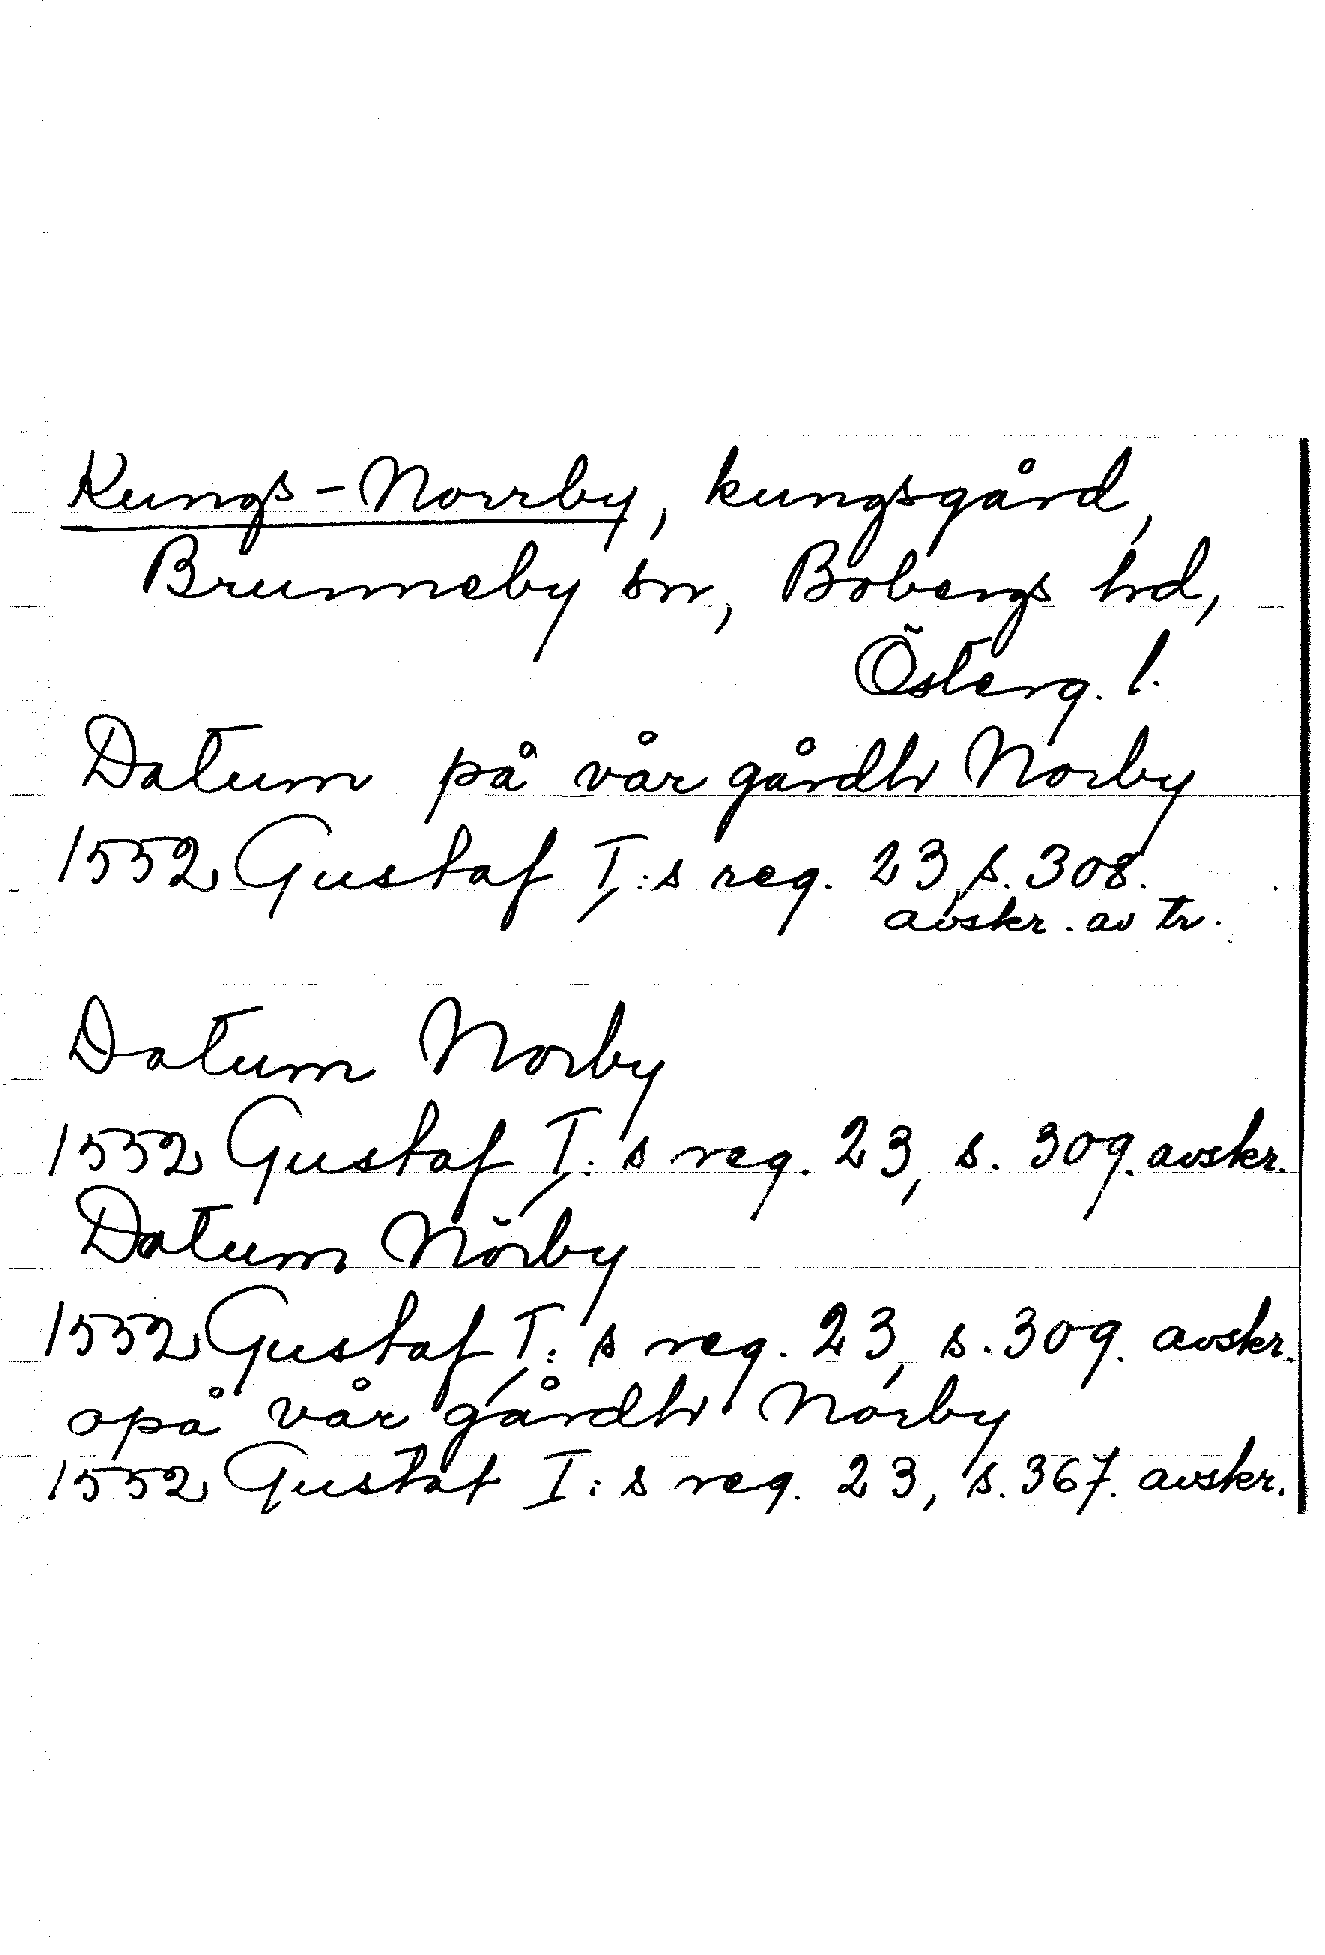 Kungs-Norrby, kungsgård,
Brunneby sn, Bobergs hd,
Österg. l.
Datum på vår gårdh Norby
1552 Gustaf I:s reg. 23, s. 308.
avskr. av tr.
Datum Norby
1552 Gustaf I:s reg. 23, s. 309. avskr.
Datum Nörby
1552 Gustaf I:s reg. 23, s. 309. avskr.
opå vår gårdh Norby
1552 Gustaf I:s reg. 23, s. 367. avskr.